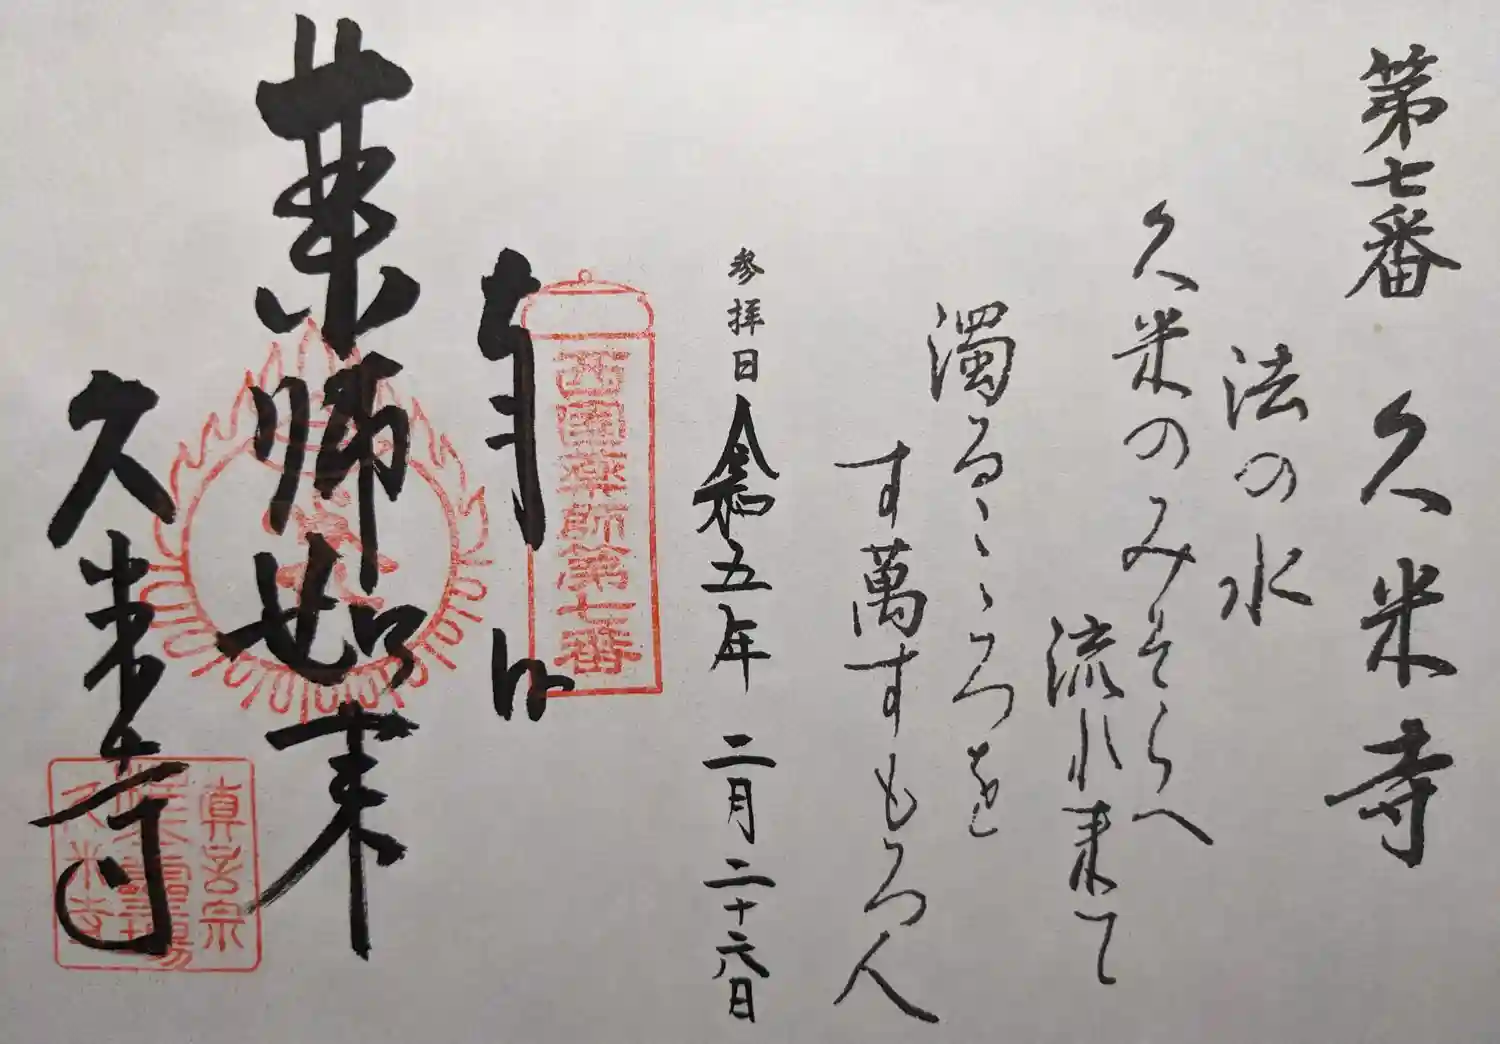 第七番 久米寺
法の水
久米のみそらへ
流れ来て
濁るこゝろを
すゝすもろ人
参拝日 令和五年 二月二十六日
奉拝
西国薬師第七番
薬師如来
久米寺
真言宗
久米寺